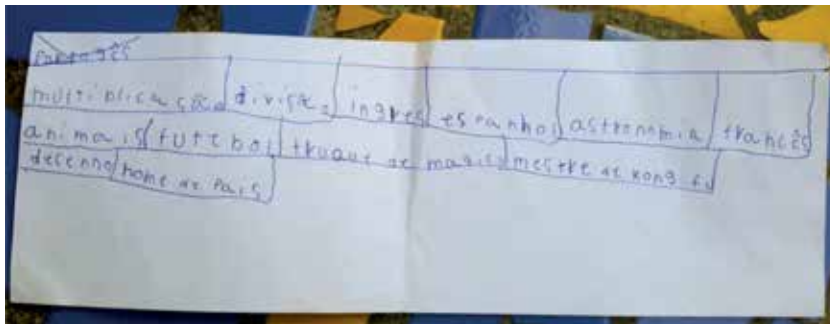 multiplicasão divisão ingres espanhol astronomia francês
animais futebol truque de magis mestre de kong fu
desenno nome de país